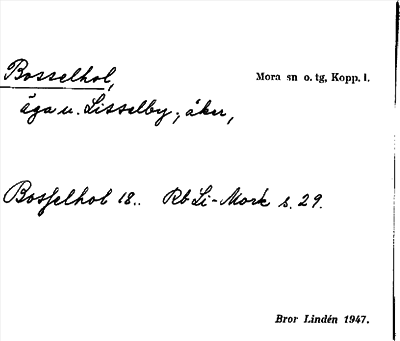 Bosselhol, Mora sn o. tg, Kopp. l.
äga u. Lisselby; åker,
Bosselhol 18.. Rb Li-Mork s. 29.
Bror Lindén 1947.